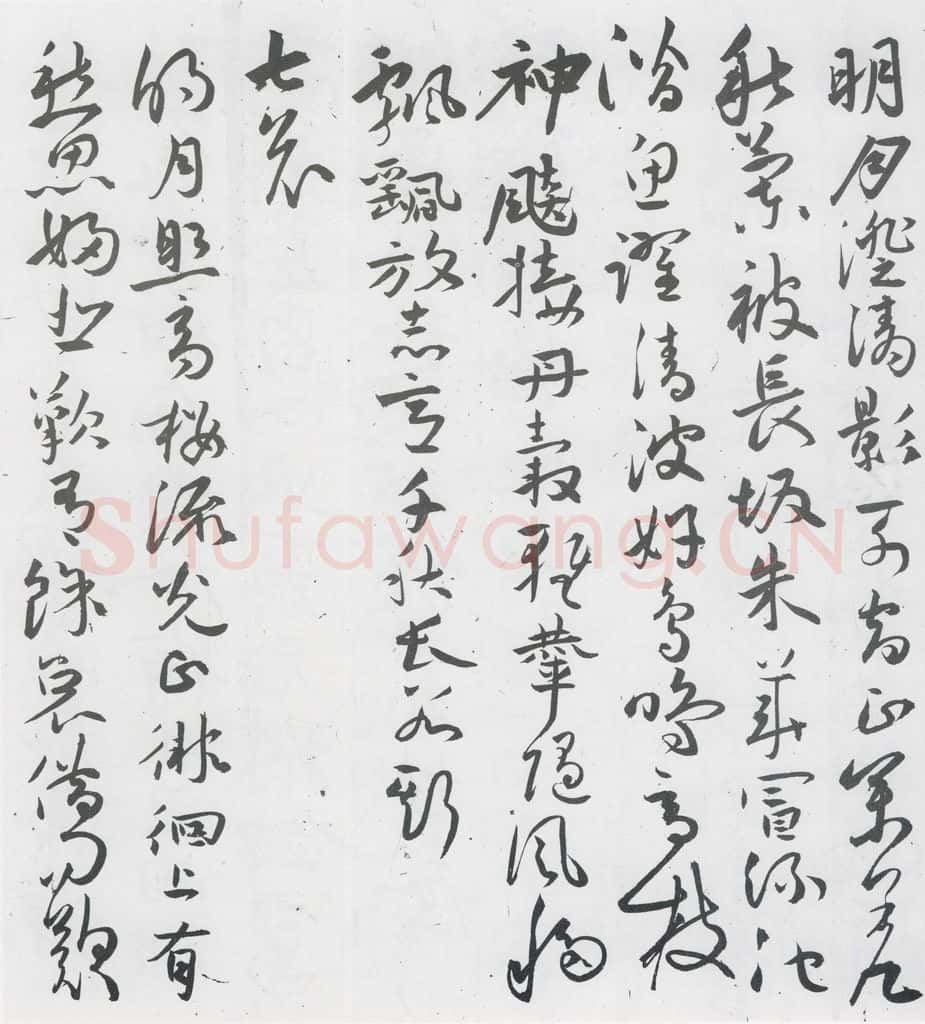 明月澄清影列宿正參差
秋蘭被長坂朱華冒綠池
潛魚躍清波好鳥鳴高枝
神飈接丹轂輕輦隨風移
飄颻放志意千秋長若斯
七哀
明月照高樓流光正徘徊上有
愁思婦悲歎有餘哀借問歎
Shufawang.CN